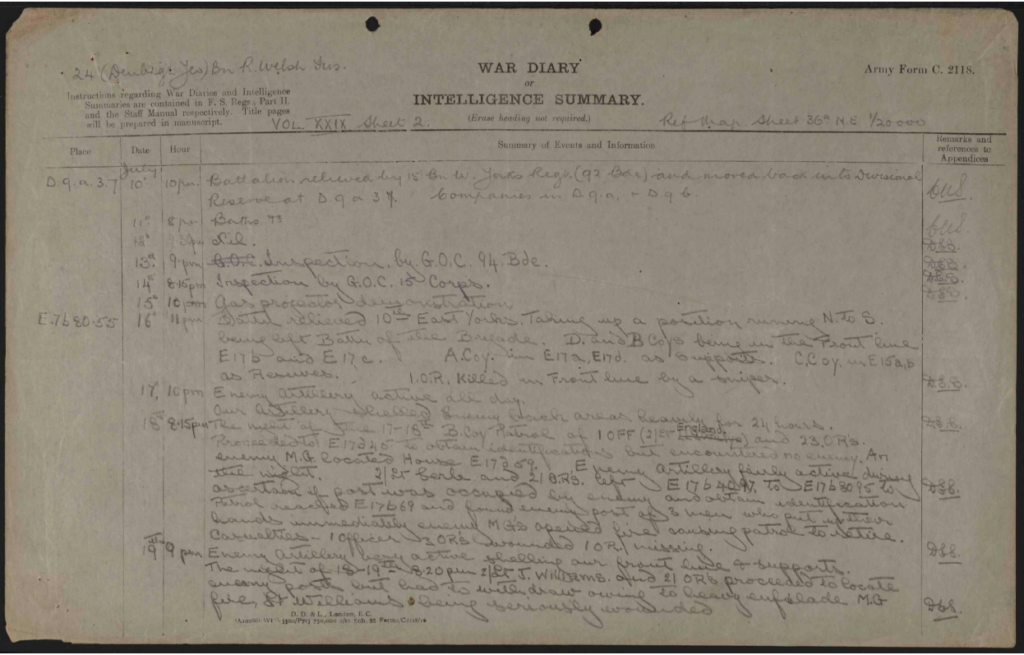 24 (Denbigh Yeo) Bn R. Welsh Fus.
WAR DIARY
or
INTELLIGENCE SUMMARY.
(Erase heading not required.)
Army Form C. 2118.
Instructions regarding War Diaries and Intelligence
Summaries are contained in F. S. Regs., Part II.
and the Staff Manual respectively. Title pages
will be prepared in manuscript.
VOL. XXIX Sheet 2.
Ref Map Sheet 36A N.E. 1/20000
Place Date Hour Summary of Events and Information Remarks and references to Appendices
July
D.9.a.3.7 10th 10pm Battalion relieved by 15 Bn W. Yorks Regt (92 Bde) and moved back into Divisional
Reserve at D9a37. Companies in D9a, - D9b.
11th 8pm Baths
12th Nil.
13th 9pm G.O.C. Inspection by G.O.C. 94 Bde. DSB.
14th 8.15pm Inspection by G.O.C. 15 Corps. DSB.
15th 10pm Gas projector demonstration DSB.
E.7b80.55 16th 11pm Battn relieved 10th East Yorks. Taking up a position running N. to S.
being left Battn of the Brigade. D. and B Coys being in the Front line
E17b and E17c. A Coy. in E17a, E17d. as supports. C. Coy, in E15a,b
as Reserves. 1.O.R. Killed in Front line by a sniper.
17th 10pm Enemy Artillery active all day. DSB.
Our Artillery shelled Enemy back areas heavily for 24 hours.
18th 8.15pm The night of the 17-18th B. Coy Patrol of 1 OFF (2/Lt England) and 23.ORs. DSB.
Proceeded to E17d45 to obtain identifications but encountered no enemy. An
enemy M.G. located House E17b59. Enemy Artillery fairly active during
the night. 2/Lt and 21 O.RS. left E17b40.97. to E17b80.95 to DSB.
ascertain if post was occupied by enemy and obtain identification
Patrol reached E17b69 and found enemy post of 3 men who put up their
hands immediately enemy MGs opened fire causing patrol to retire.
Casualties - 1 Officer 3 ORS wounded 1 OR missing.
19th 9pm Enemy Artillery very active shelling our front line & supports. DSB.
The night of 18-19th 8.20pm 2/Lt J. Williams. and 21 ORs proceeded to locate
enemy posts but had to withdraw owing to heavy enfilade M.G
fire, Lt Williams being seriously wounded DSB.
D. D. & L., London, E.C.